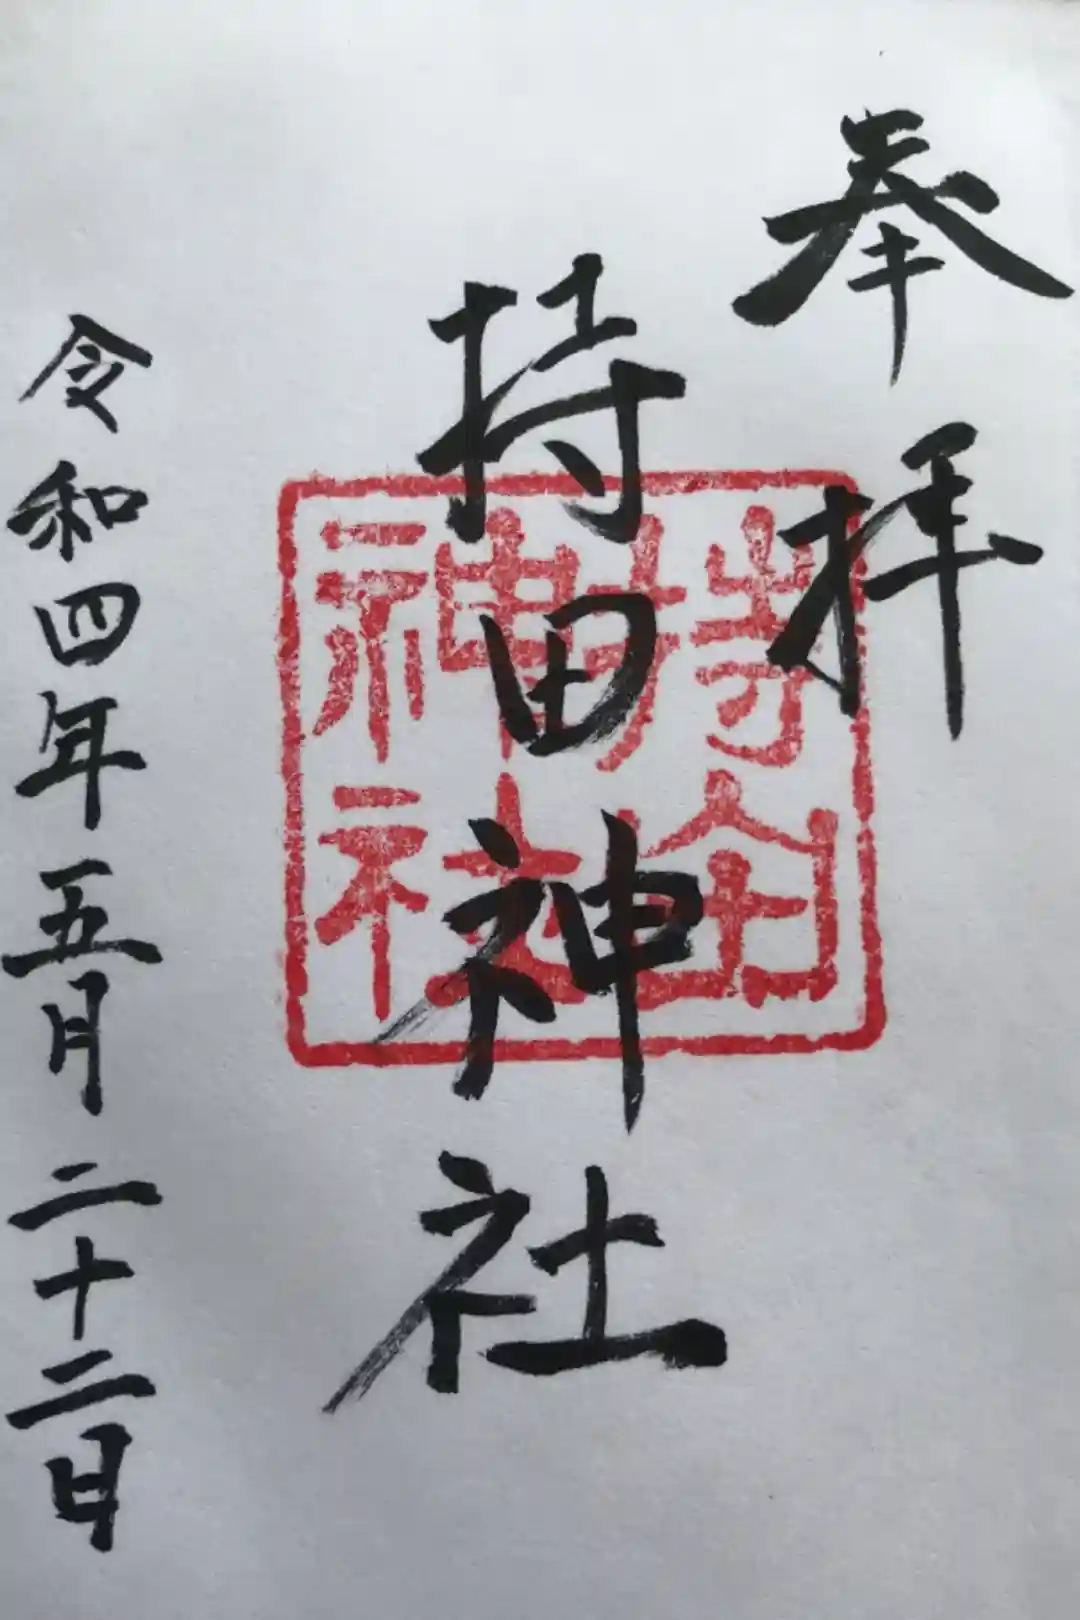 奉拝
持田神社
令和四年五月二十二日
持田
神社